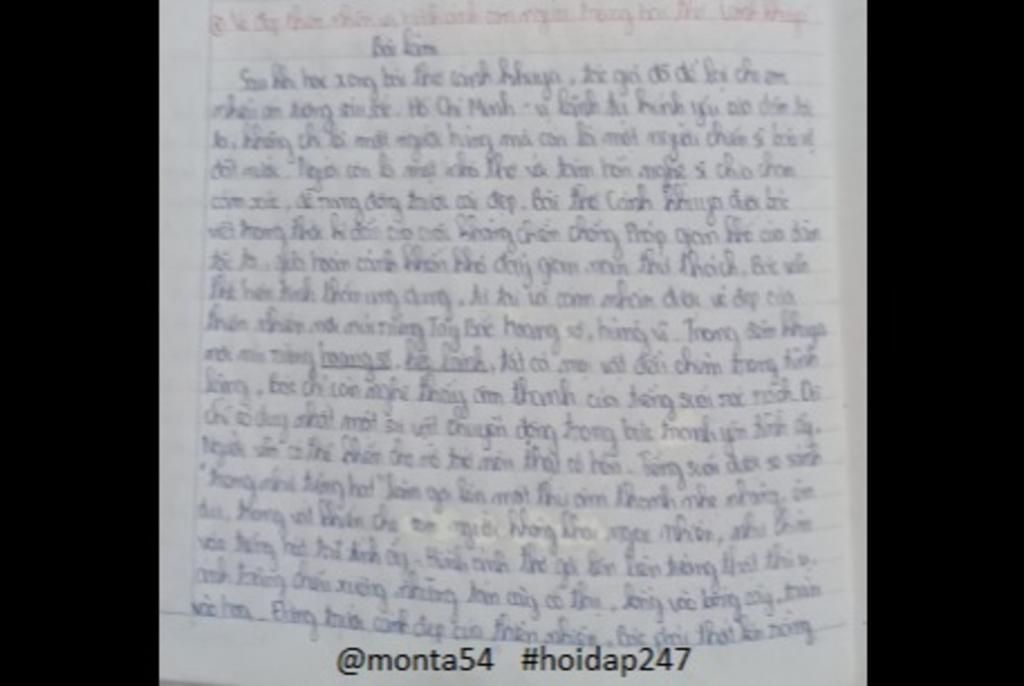 Vẻ đẹp thiên nhiên và hình ảnh con người trong bài thơ Cảnh khuya
Bài làm
Sau khi học xong bài thơ cảnh khuya, tác giả đã để lại cho em
nhiều ấn tượng sâu sắc. Hồ Chí Minh - vị lãnh tụ kính yêu của dân tộc
ta, không chỉ là một người hùng mà còn là một người chiến sĩ bảo vệ
đất nước. Người còn là một nhà thơ với tâm hồn nghệ sĩ chứa chan
cảm xúc, dễ rung động trước cái đẹp. Bài thơ Cảnh khuya được bác
viết trong thời kì đầu của cuộc kháng chiến chống Pháp gian khổ của dân
tộc ta. hoàn cảnh khốn khó đầy gian nan thử thách, Bác vẫn
thể hiện tinh thần ung dung, tự tại và cảm nhận được vẻ đẹp của
thiên nhiên nơi núi rừng Tây Bắc hoang sơ, hùng vĩ. Trong đêm khuya
nơi núi rừng hoang sơ, tất cả mọi vật đều chìm trong tĩnh
lặng, bác chỉ còn nghe thấy âm thanh của tiếng suối róc rách. Dù
chỉ có duy nhất một sự vật chuyển động trong bức tranh yên tĩnh ấy,
Người vẫn có thể khiến cho nó trở nên thật có hồn. Tiếng suối được so sánh
"trong như tiếng hát" làm gợi lên một thứ âm thanh nhẹ nhàng, êm
dịu, trong vắt khiến cho con người không khỏi ngạc nhiên, như chìm
vào tiếng hát trữ tình ấy. Hình ảnh thơ gợi lên
ánh trăng chiếu xuống những tán cây cổ thụ, lồng vào bóng cây, tràn
vào hoa. Đứng trước cảnh đẹp của thiên nhiên, Bác phải thốt lên rằng
@monta54 #hoidap247